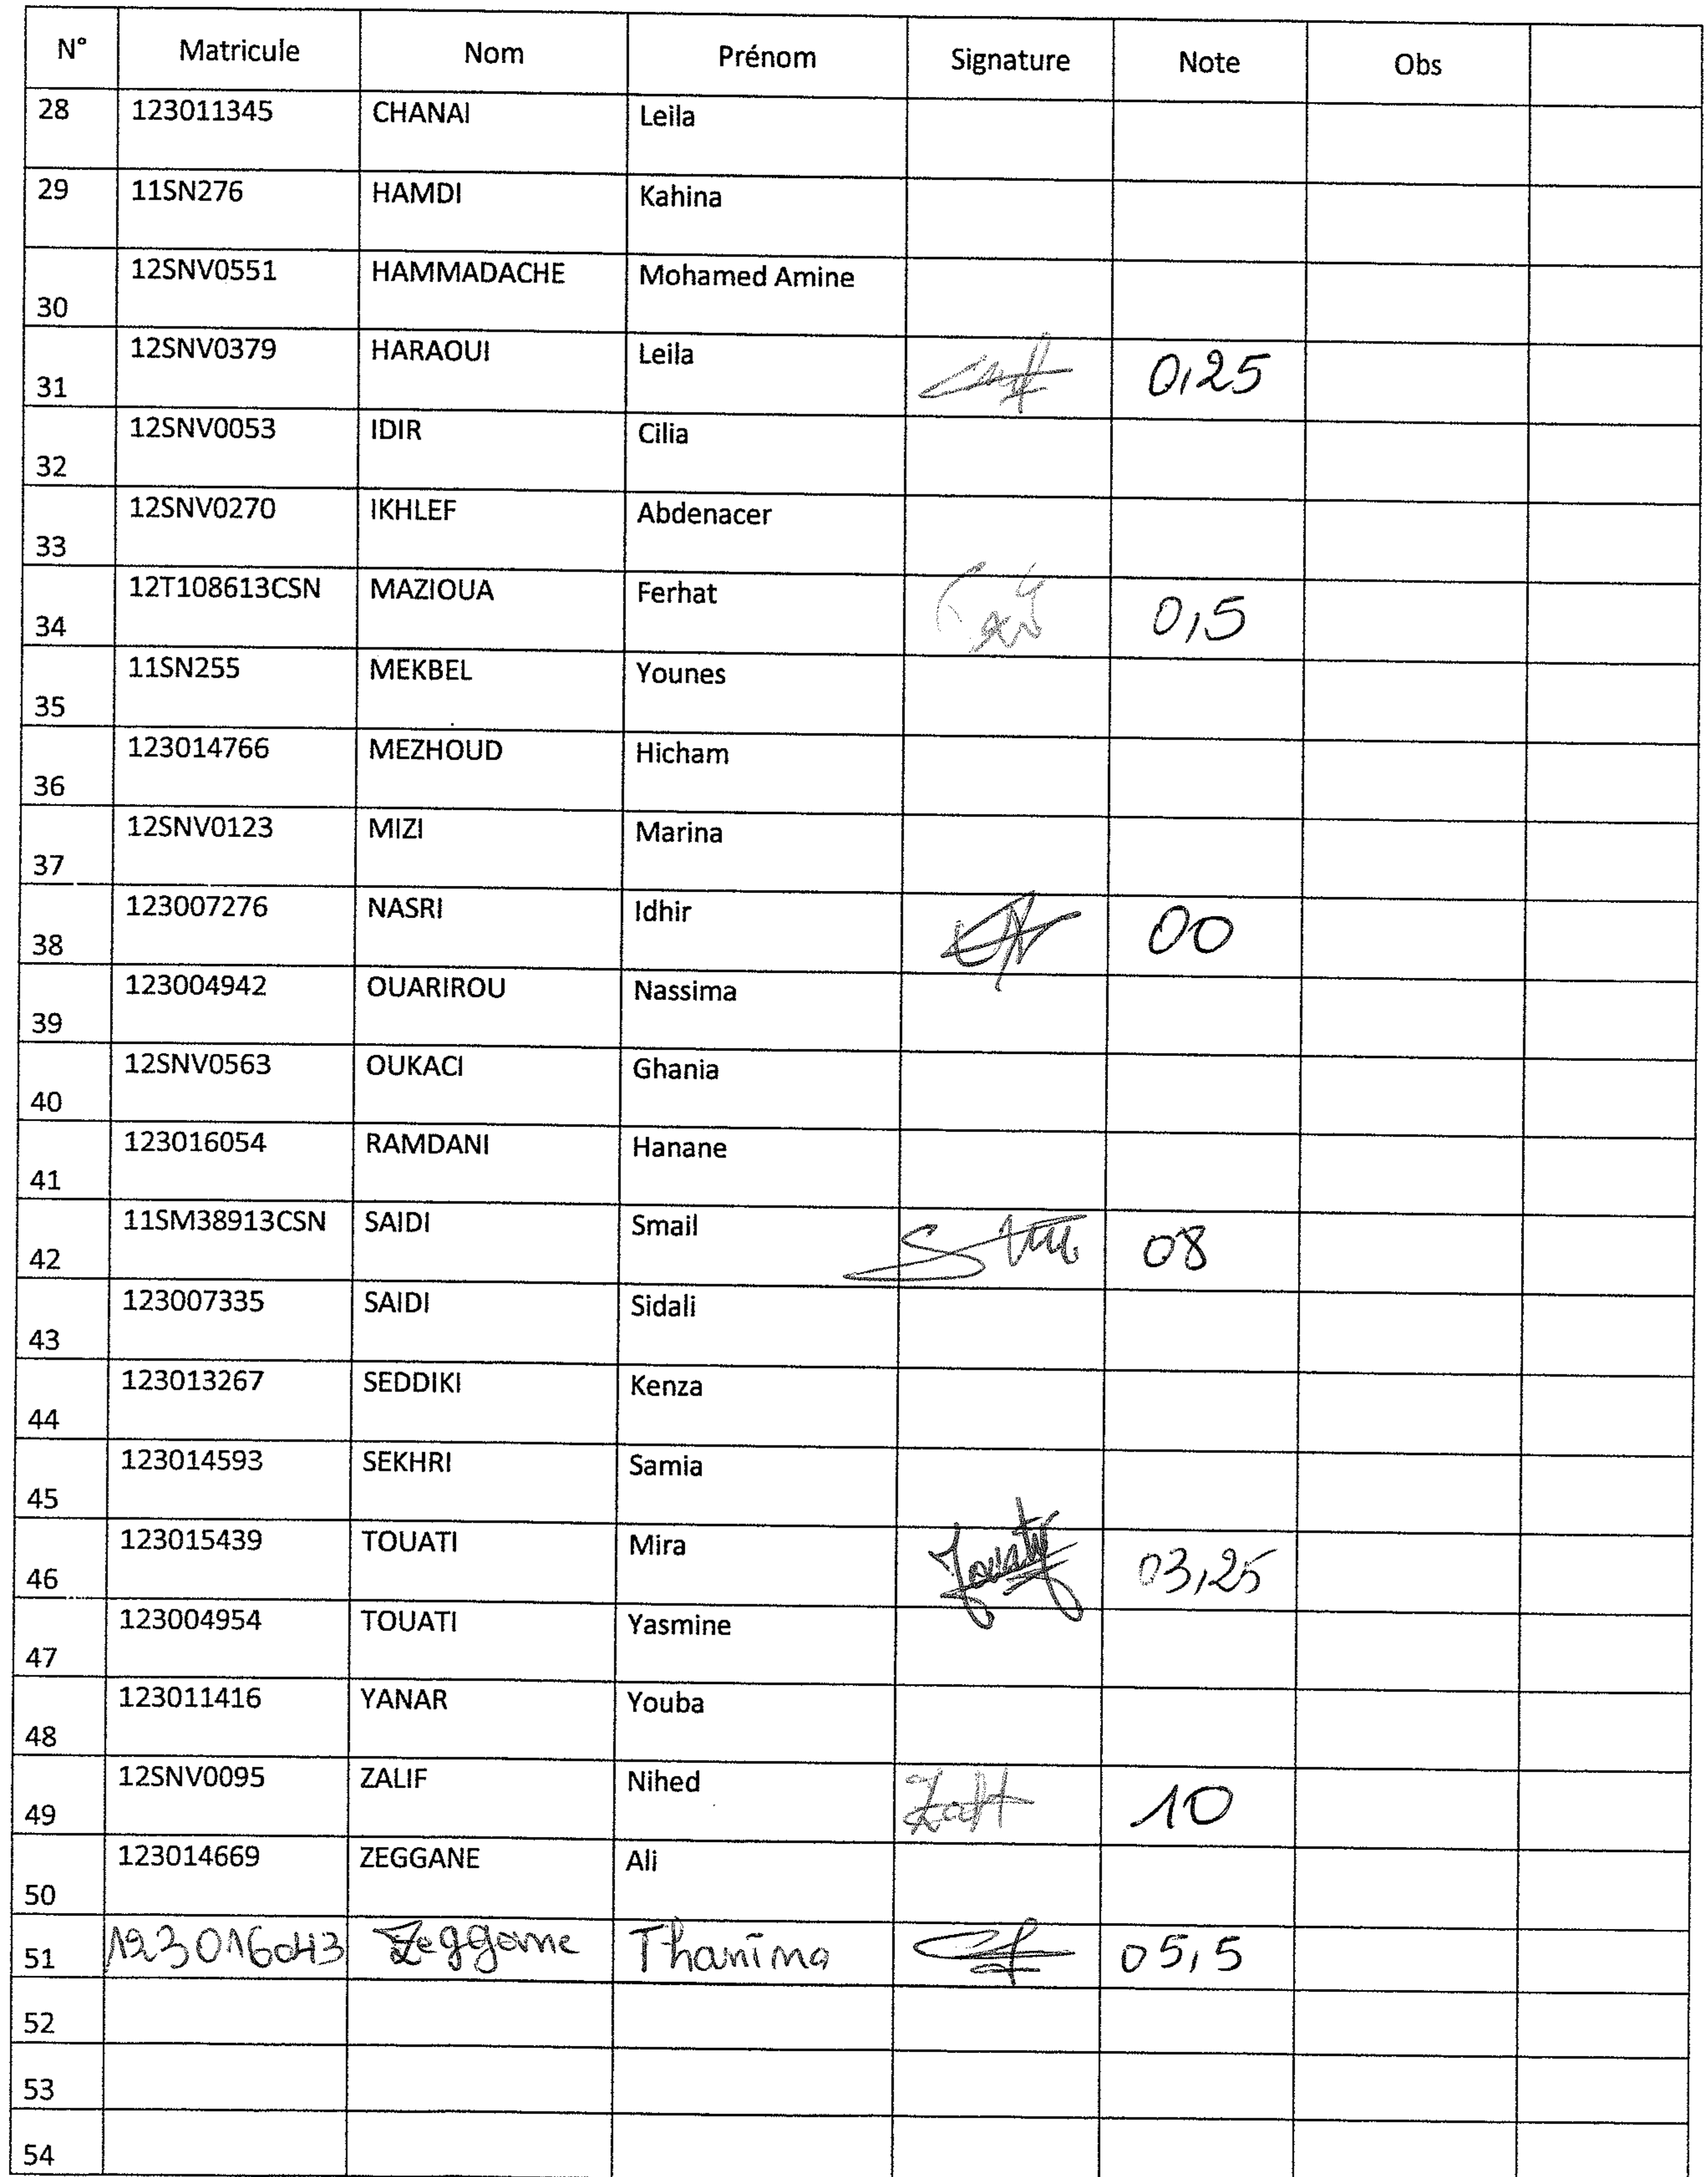 N° Matricule Nom Prénom Signature Note Obs
28 123011345 CHANAI Leila
29 11SN276 HAMDI Kahina
30 12SNV0551 HAMMADACHE Mohamed Amine
31 12SNV0379 HARAOUI Leila 0,25
32 12SNV0053 IDIR Cilia
33 12SNV0270 IKHLEF Abdenacer
34 12T108613CSN MAZIOUA Ferhat 0,5
35 11SN255 MEKBEL Younes
36 123014766 MEZHOUD Hicham
37 12SNV0123 MIZI Marina
38 123007276 NASRI Idhir 00
39 123004942 OUARIROU Nassima
40 12SNV0563 OUKACI Ghania
41 123016054 RAMDANI Hanane
42 11SM38913CSN SAIDI Smail 08
43 123007335 SAIDI Sidali
44 123013267 SEDDIKI Kenza
45 123014593 SEKHRI Samia
46 123015439 TOUATI Mira 03,25
47 123004954 TOUATI Yasmine
48 123011416 YANAR Youba
49 12SNV0095 ZALIF Nihed 10
50 123014669 ZEGGANE Ali
51 123016043 Zeggane Thanina 05,5
52
53
54